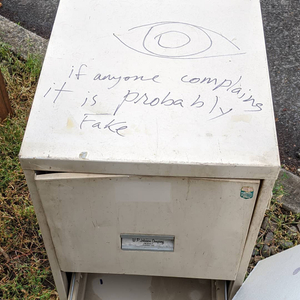 if anyone complains
it is probably
Fake